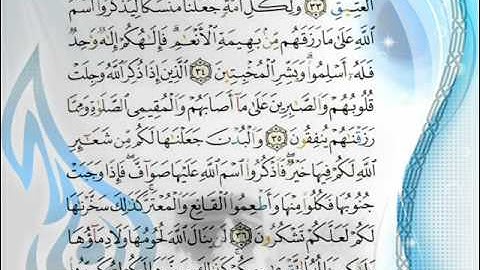 ٱلۡعَتِيقِ ٣٣ وَلِكُلِّ أُمَّةٖ جَعَلۡنَا مَنسَكٗا لِّيَذۡكُرُواْ ٱسۡمَ
ٱللَّهِ عَلَىٰ مَا رَزَقَهُم مِّنۢ بَهِيمَةِ ٱلۡأَنۡعَٰمِۗ فَإِلَٰهُكُمۡ إِلَٰهٞ وَٰحِدٞ
فَلَهُۥٓ أَسۡلِمُواْۗ وَبَشِّرِ ٱلۡمُخۡبِتِينَ ٣٤ ٱلَّذِينَ إِذَا ذُكِرَ ٱللَّهُ وَجِلَتۡ
قُلُوبُهُمۡ وَٱلصَّٰبِرِينَ عَلَىٰ مَآ أَصَابَهُمۡ وَٱلۡمُقِيمِي ٱلصَّلَوٰةِ وَمِمَّا
رَزَقۡنَٰهُمۡ يُنفِقُونَ ٣٥ وَٱلۡبُدۡنَ جَعَلۡنَٰهَا لَكُم مِّن شَعَٰٓئِرِ
ٱللَّهِ لَكُمۡ فِيهَا خَيۡرٞۖ فَٱذۡكُرُواْ ٱسۡمَ ٱللَّهِ عَلَيۡهَا صَوَآفَّۖ فَإِذَا وَجَبَتۡ
جُنُوبُهَا فَكُلُواْ مِنۡهَا وَأَطۡعِمُواْ ٱلۡقَانِعَ وَٱلۡمُعۡتَرَّۚ كَذَٰلِكَ سَخَّرۡنَٰهَا
لَكُمۡ لَعَلَّكُمۡ تَشۡكُرُونَ ٣٦ لَن يَنَالَ ٱللَّهَ لُحُومُهَا وَلَا دِمَآؤُهَا